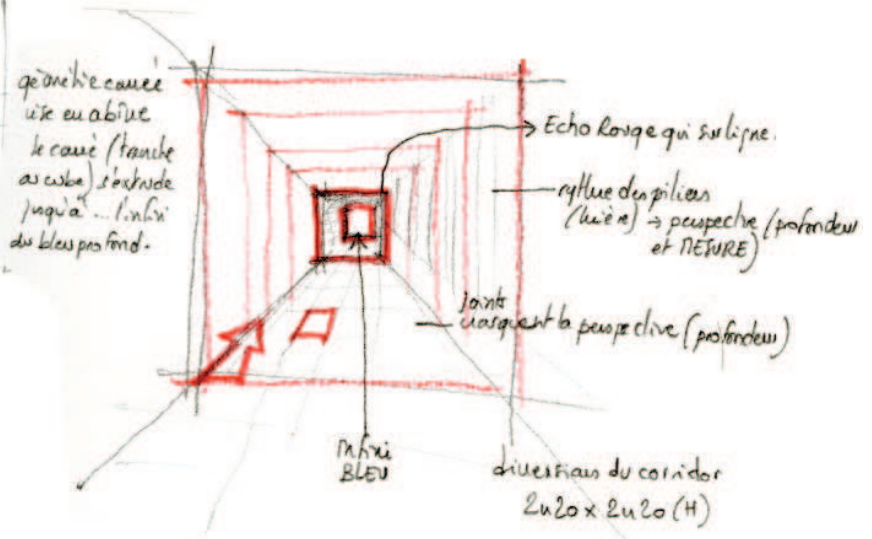 géométrie carrée
mise en abîme
le carré (tranche
du cube) s'extrude
jusqu'à ... l'infini
du bleu profond.
Echo Rouge qui souligne.
rythme des piliers
(lumière) → perspective (profondeur
et MESURE)
joints
marquent la perspective (profondeur)
infini
BLEU
dimensions du corridor
2m20 x 2m20 (H)